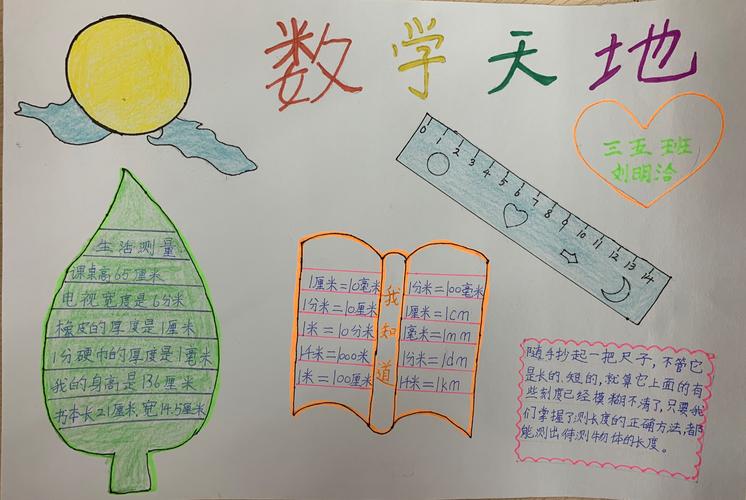 数学天地
三五班
刘明洽
0 1 2 3 4 5 6 7 8 9 10 11 12 13 14
生活测量
课桌高65厘米
电视宽度是6分米
橡皮的厚度是1厘米
1分硬币的厚度是1毫米
我的身高是136厘米
书本长21厘米,宽14.5厘米
1厘米=10毫米
1分米=10厘米
1米=10分米
1千米=1000米
1米=100厘米
我知道
1分米=100毫米
1厘米=1cm
1毫米=1mm
1分米=1dm
1千米=1km
随手抄起一把尺子,不管它
是长的、短的,就算它上面的有
些刻度已经模糊不清了,只要我
们掌握了测长度的正确方法,都
能测出待测物体的长度。